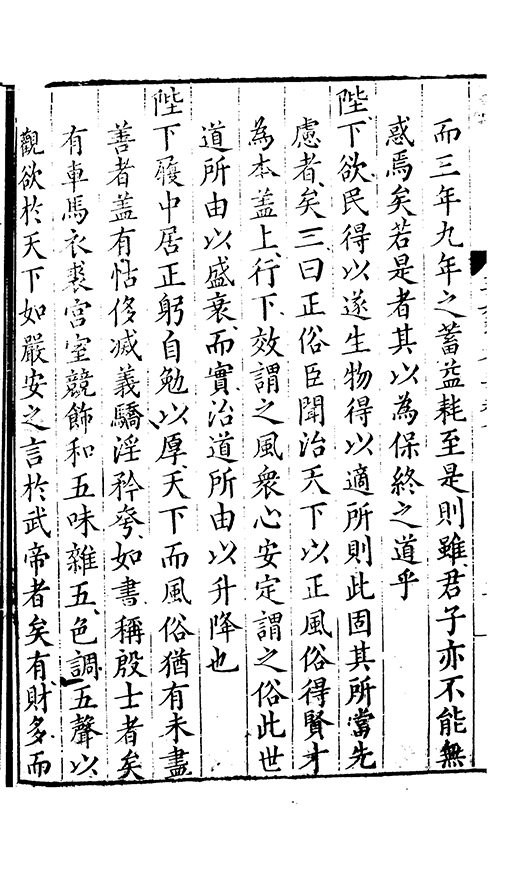 而三年九年之蓄益耗至是則雖君子亦不能無
惑焉矣若是者其以為保終之道乎
陛下欲民得以遂生物得以適所則此固其所當先
慮者矣三曰正俗臣聞治天下以正風俗得賢才
為本蓋上行下效謂之風衆心安定謂之俗此世
道所由以盛衰而實治道所由以升降也
陛下履中居正躬自勉以厚天下而風俗猶有未盡
善者蓋有怙侈滅義驕淫矜夸如書稱殷士者矣
有車馬衣裘宮室競飾和五味雜五色調五聲以
觀欲於天下如嚴安之言於武帝者矣有財多而